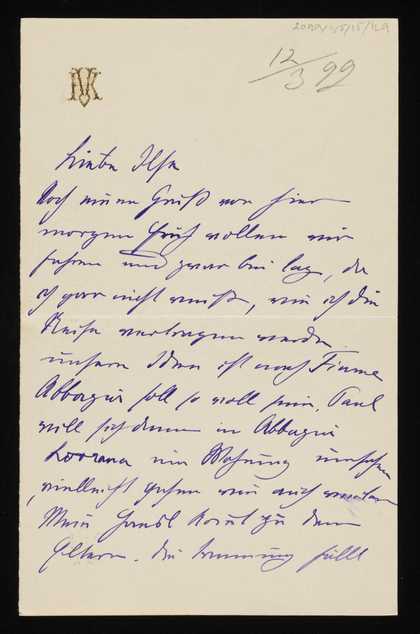 12/3 99
Liebe Ilse
Noch einen Gruß von hier
morgen früh wollen wir
fahren und zwar bei Tag, da
ich gar nicht weiß, wie ich die
Reise vertragen werde.
unsere Idee ist nach Fiume
Abbazia soll so voll sein. Paul
will sich dann in Abbazia
Lovrana um Wohnung umsehen
, vielleicht gehen wir auch weiter
Mein Hansl kommt zu den
Eltern. die Trennung fällt